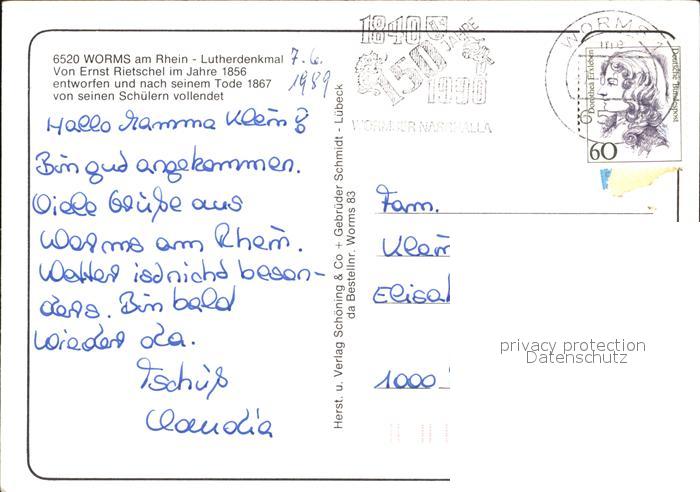 6520 WORMS am Rhein - Lutherdenkmal
Von Ernst Rietschel im Jahre 1856
entworfen und nach seinem Tode 1867
von seinen Schülern vollendet
7.6.
1989
Hallo Mamma Klein!
Bin gud angekommen.
Viele Grüße aus
Worms am Rhein.
Wetter isd nicht beson-
ders. Bin bald
wieder da.
Tschüß
Claudia
Herst. u. Verlag Schöning & Co + Gebrüder Schmidt - Lübeck
da Bestellnr. Worms 83
1840
150 JAHRE
1990
WORMSER NARRHALLA
WORMS
Dorothea Erxleben
Deutsche Bundespost
60
Fam.
Klein
Elisa
1000
privacy protection
Datenschutz